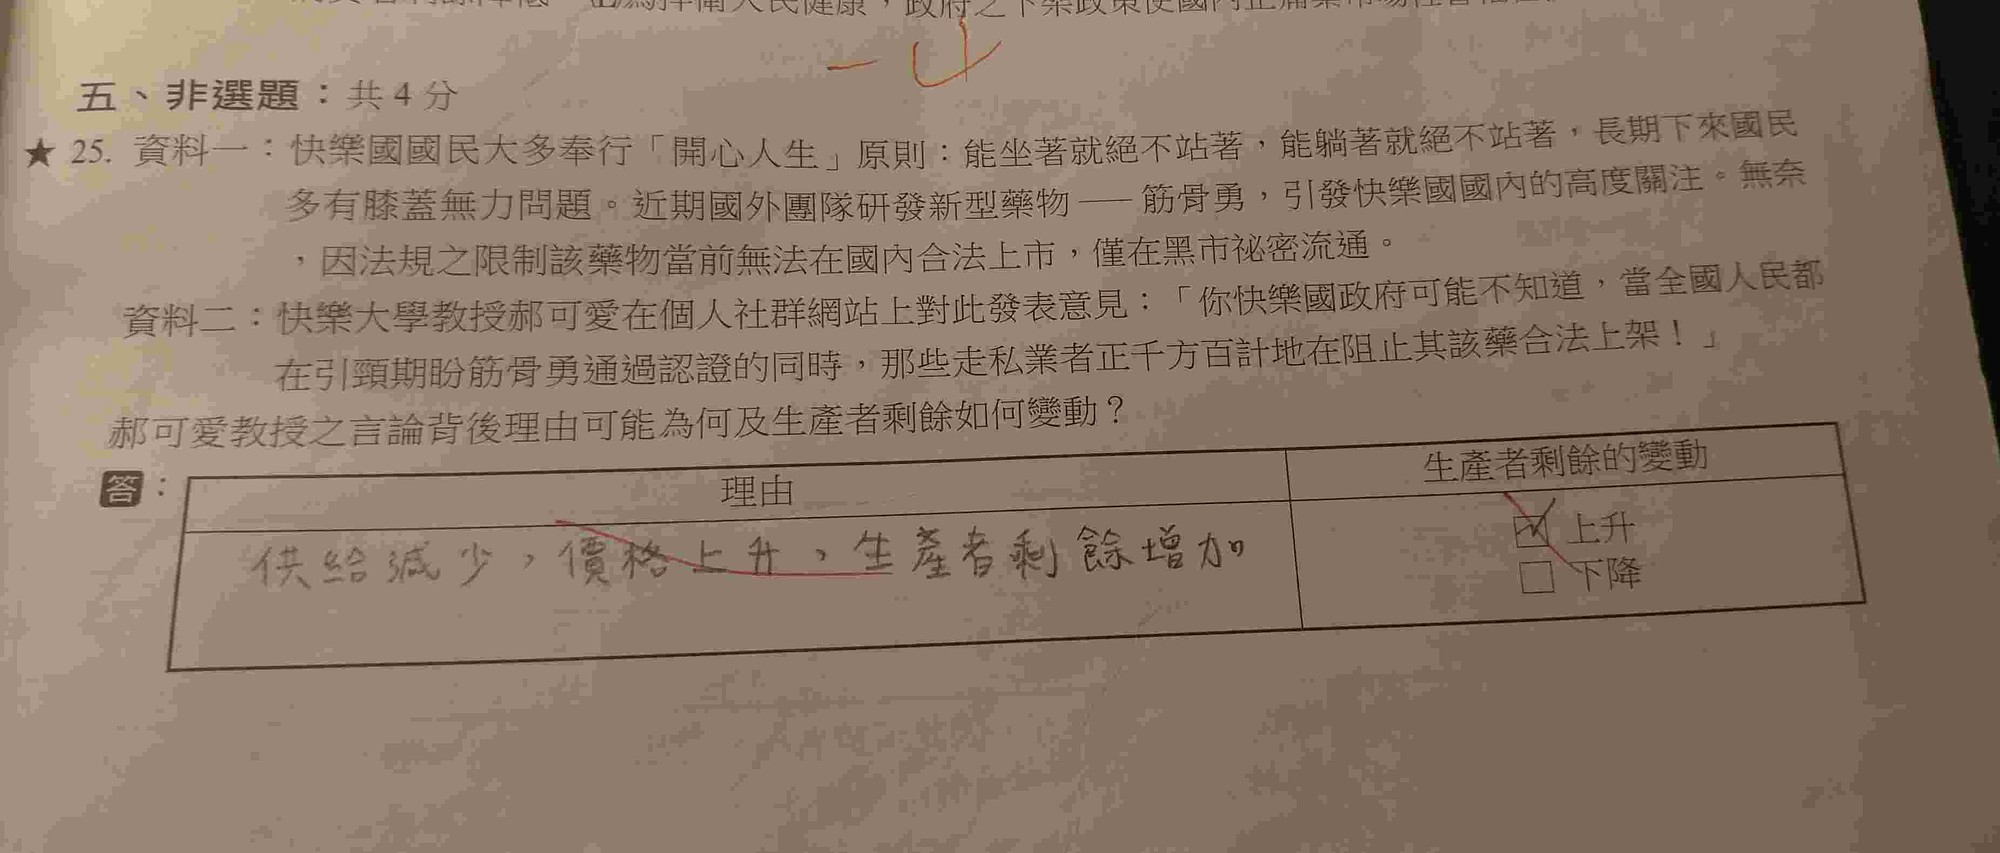 政府之下架政策使國內止痛藥市場
-4
五、非選題：共4分
★ 25. 資料一：快樂國國民大多奉行「開心人生」原則：能坐著就絕不站著，能躺著就絕不站著，長期下來國民
多有膝蓋無力問題。近期國外團隊研發新型藥物──筋骨勇，引發快樂國國內的高度關注。無奈
，因法規之限制該藥物當前無法在國內合法上市，僅在黑市祕密流通。
資料二：快樂大學教授郝可愛在個人社群網站上對此發表意見：「你快樂國政府可能不知道，當全國人民都
在引頸期盼筋骨勇通過認證的同時，那些走私業者正千方百計地在阻止其該藥合法上架！」
郝可愛教授之言論背後理由可能為何及生產者剩餘如何變動？
答：
理由 生產者剩餘的變動
供給減少，價格上升，生產者剩餘增加
☑ 上升
□ 下降